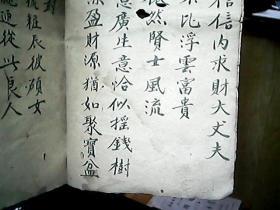 信內求財大丈夫
比浮雲富貴
於賢士風流
意廣生意恰似摇錢樹
盈財源猶如聚寳盆
辰彼碩女
從此良人